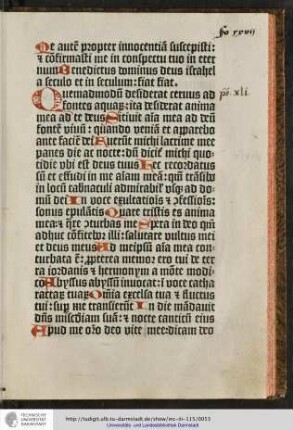 fo xxvij
Me autē propter innocentiā suscepisti:
⁊ cōfirmasti me in conspectu tuo in eter
num Benedictus dominus deus israhel
a seculo et in seculum: fiat fiat.
Quemadmodū desiderat ceruus ad
fontes aquaꝝ: ita desiderat anima
mea ad te deus Sitiuit aīa mea ad deū
fontē viuū: quando veniā et apparebo
ante faciē dei Fuerūt michi lacrime mee
panes die ac nocte: dū dicit michi quo-
tidie vbi est deus tuus Hec recordatus
sū et effudi in me aīam meā: qm̄ trāsibo
in locū tabnaculi admirabil' vsqꝫ ad do-
mū dei In voce exultatiōis ⁊ ꝯfessiōis:
sonus epulātis Quare tristis es anima
mea: ⁊ qre ꝯturbas me Spera in deo qm̄
adhuc cōfitebor illi: salutare vultus mei
et deus meus Ad meipsū aīa mea con-
turbata ē: ꝓpterea memor ero tui de ter
ra iordanis ⁊ hermonym a mōte modi-
co Abyssus abyssū inuocat: ī voce catha
ractaꝝ tuaꝝ Omīa excelsa tua ⁊ fluctus
tui: sup me transierūt In die mādauit
dn̄s miscdiam suā: ⁊ nocte canticū eius
Apud me orō deo vite mee: dicam deo
ps. xli.
TECHNISCHE
UNIVERSITÄT
DARMSTADT
http://tudigit.ulb.tu-darmstadt.de/show/inc-iii-115/0053
Universitäts- und Landesbibliothek Darmstadt